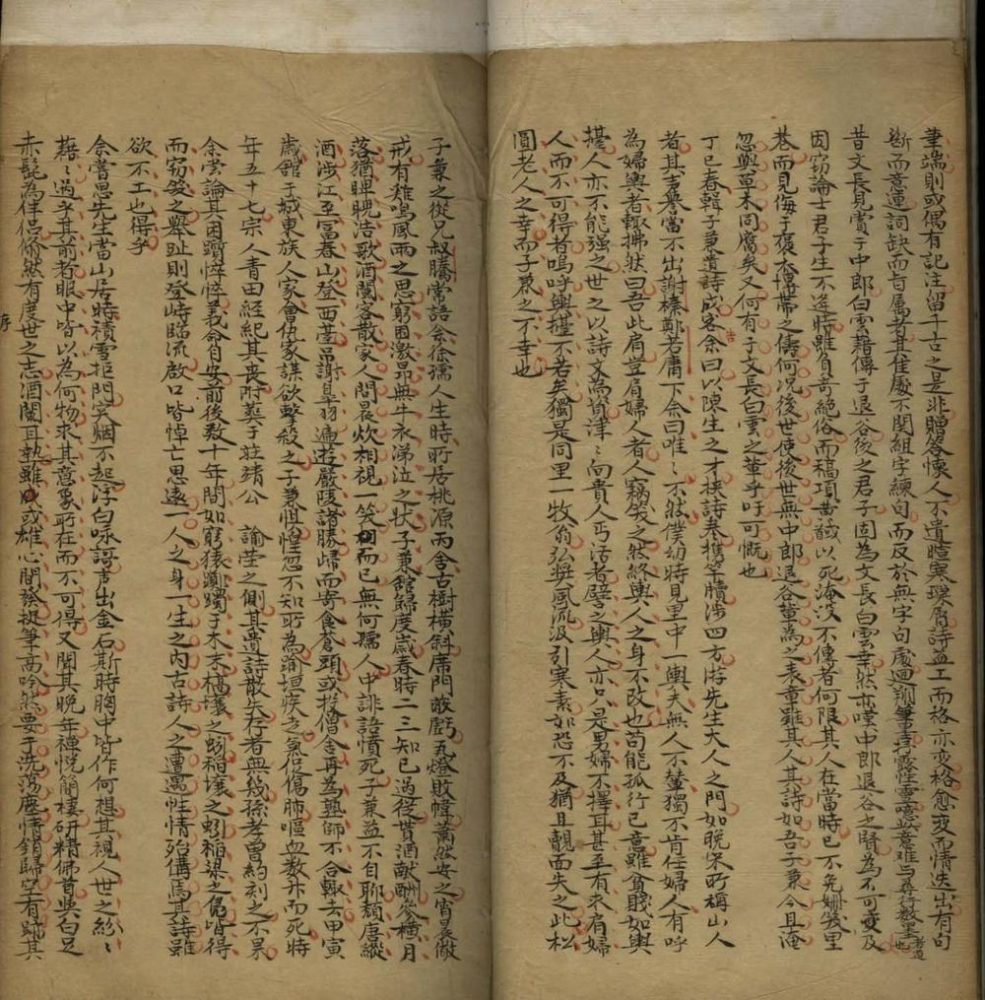 筆端則或偶有記注留千古之是非贈答懷人不遺暄寒瑣屑詩益工而格亦变格愈变而情迭出有句
断而意連詞缺而旨属者其佳處不関組字練句而反於無字句處迴翔筆毒露性靈噫此意难与尋行数墨者道也
昔文長見賞于中郎白雲藉傳于退谷後之君子固為文長白雲幸然亦嘆中郎退谷之賢為不可更及
因窃論士君子生不逢時雖負奇絶俗而稿項黄馘以死淹没不傳者何限其人在當時已不免姍笑里
巷而見侮于褒衣博帶之儔何况後世使後世無中郎退谷輩為之表章雖其人其詩如吾子兼今且淹
忽與草木同腐矣又何有于文長白雲之輩乎吁可慨也
丁巳春輯子兼遺詩成客余曰以陳生之才挟詩卷携筆牘涉四方游先生大人之門如晚宋所稱山人
者其声譽當不出谢榛鄭若庸下余曰唯〻不然僕幼時見里中一輿夫無人不輦獨不肯任婦人有呼
為婦輿者輒拂然曰吾此肩豈肩婦人者人竊笑之然終輿人之身不改也苟能孤行已意雖貧賤如輿
擡人亦不能强之世之以詩文為貨津〻向貴人丐活者譬之輿人亦只是男婦不擇耳甚至有求肩婦
人而不可得者嗚呼輿擡不若矣獨是同里一牧翁弘奨風流汲引寒素如恐不及猶且覿面失之此松
圓老人之幸而子兼之不幸也
子兼之從兄叔騰常語余徐孺人生時所居桃源两舍古樹横斜席門歌戲瓦燈敗幃蕭然安之宵晨儆
戒有雞鳴風雨之思窮困激昂無牛衣涕泣之状子兼館歸度歲春時二三知已過從貰酒献酬參横月
落猶睥睨浩歌酒闌客散家人問晨炊相視一笑而已無何孺人中誹語憤死子兼益不自聊頽唐縱
酒涉江至富春山登西臺謝臯羽遍遊嚴陵諸勝歸而寄食蒼頭或投僧舍再為塾師不合輒去甲寅
歳館于城東族人家會仇家謀欲擊殺之子兼惧惶忽不知所為踰垣疾走氣促傷肺嘔血数升而死時
年五十七宗人青田經紀其丧附葬于莊靖公　諭塋之側其遺詩散失存者無幾孫孝曾約刻之不果
余嘗論其困躓悴悴義命自安前後数十年間如窮猿躑躅于木末槁壤之蚓
而窃笑之舉趾則登峙臨流啟口皆悼亡思遠一人之身一生之内古詩人之遭遇性情殆備焉其詩雖
欲不工也得乎
余嘗思先生當山居時積雪拒門爨烟不起浮白咏謌声出金石斯時胸中皆作何想其視人世之紛〻
藉〻過乎其前者眼中皆以為何物求其意象所在而不可得又聞其晚年禅悦簡棲研精佛首與白足
赤髭為伴侣翛然有度世之志酒闌耳熱雖或雄心間發抚筆高吟然要于洗荡塵情銷歸空有歸其
序